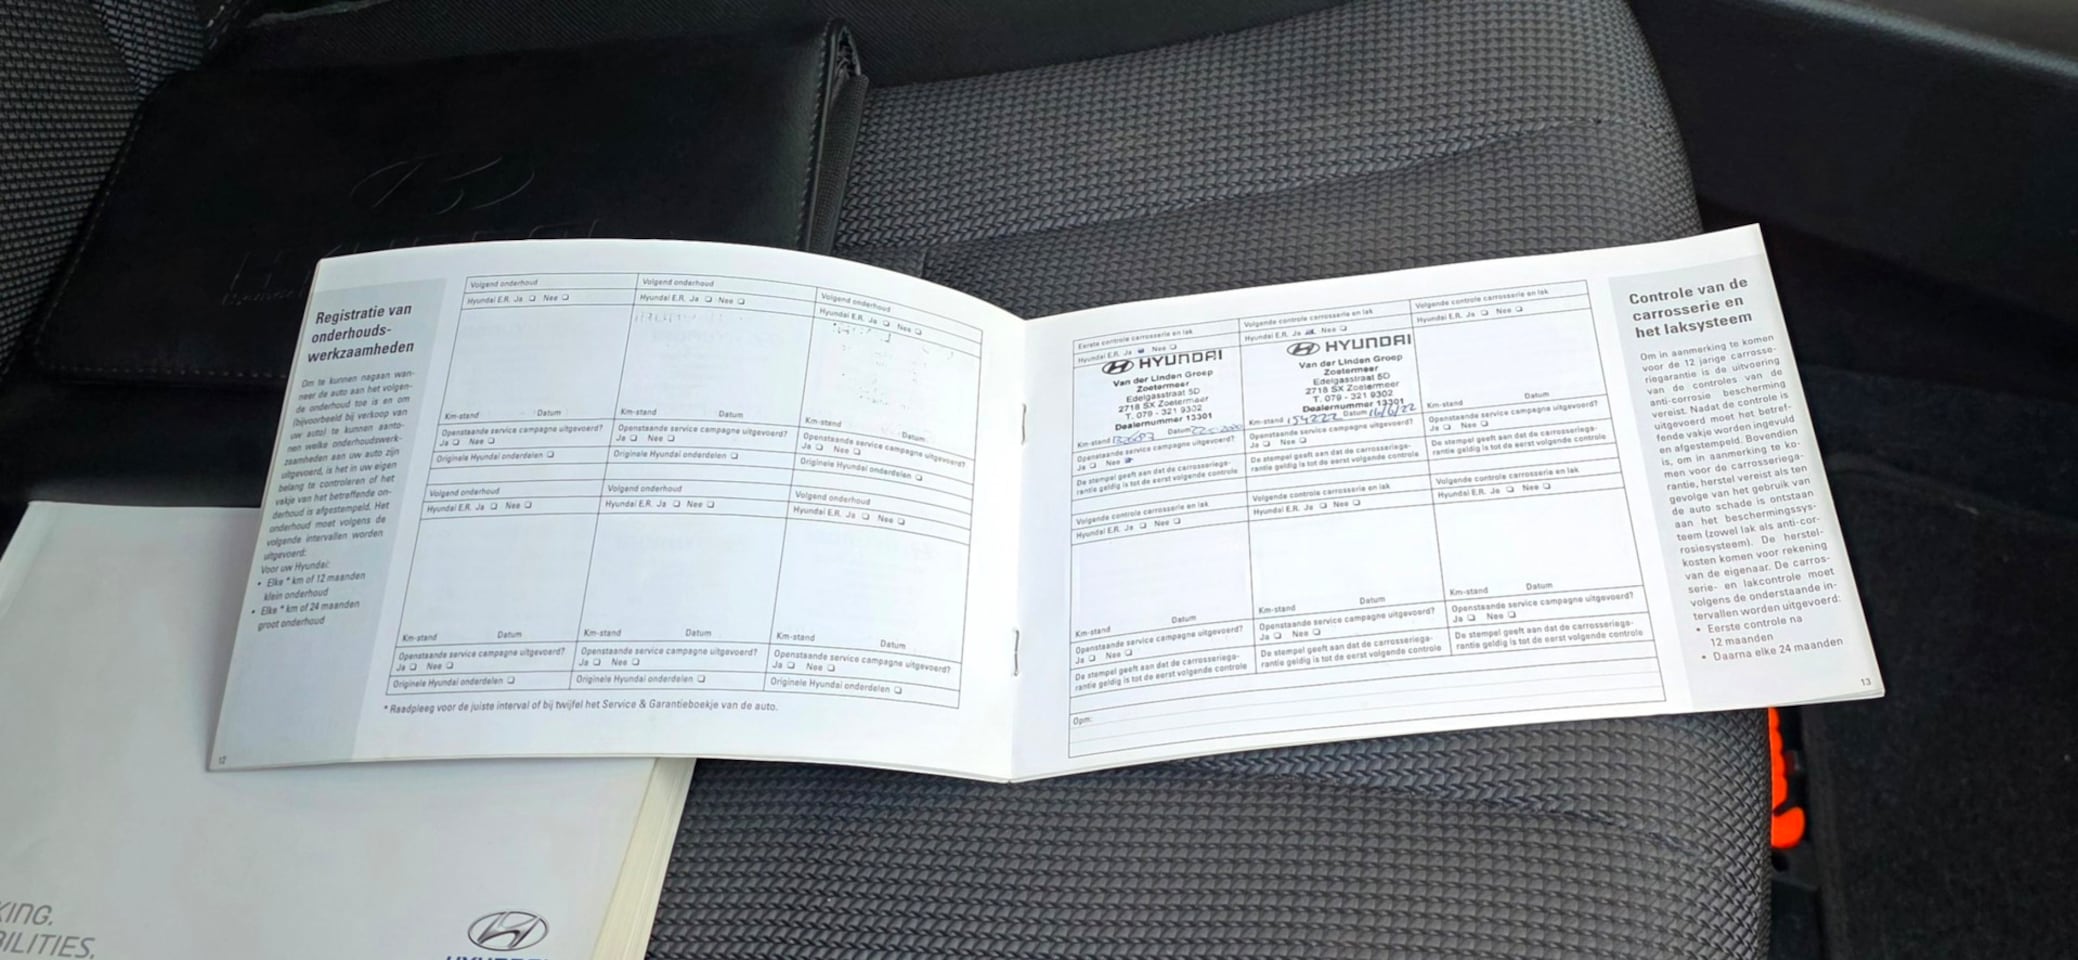 Registratie van
onderhouds-
werkzaamheden
Om te kunnen nagaan wan-
neer de auto aan het volgen-
de onderhoud toe is en om
(bijvoorbeeld bij verkoop van
uw auto) te kunnen aanto-
nen welke onderhoudswerk-
zaamheden aan uw auto zijn
uitgevoerd, is het in uw eigen
belang te controleren of het
vakje van het betreffende on-
derhoud is afgestempeld. Het
onderhoud moet volgens de
volgende intervallen worden
uitgevoerd:
Voor uw Hyundai:
• Elke * km of 12 maanden
klein onderhoud
• Elke * km of 24 maanden
groot onderhoud
12
Volgend onderhoud
Hyundai E.R. Ja ❏ Nee ❏
Km-stand Datum
Openstaande service campagne uitgevoerd?
Ja ❏ Nee ❏
Originele Hyundai onderdelen ❏
Volgend onderhoud
Hyundai E.R. Ja ❏ Nee ❏
Km-stand Datum
Openstaande service campagne uitgevoerd?
Ja ❏ Nee ❏
Originele Hyundai onderdelen ❏
Volgend onderhoud
Hyundai E.R. Ja ❏ Nee ❏
Km-stand Datum
Openstaande service campagne uitgevoerd?
Ja ❏ Nee ❏
Originele Hyundai onderdelen ❏
Volgend onderhoud
Hyundai E.R. Ja ❏ Nee ❏
Km-stand Datum
Openstaande service campagne uitgevoerd?
Ja ❏ Nee ❏
Originele Hyundai onderdelen ❏
Volgend onderhoud
Hyundai E.R. Ja ❏ Nee ❏
Km-stand Datum
Openstaande service campagne uitgevoerd?
Ja ❏ Nee ❏
Originele Hyundai onderdelen ❏
Volgend onderhoud
Hyundai E.R. Ja ❏ Nee ❏
Km-stand Datum
Openstaande service campagne uitgevoerd?
Ja ❏ Nee ❏
Originele Hyundai onderdelen ❏
* Raadpleeg voor de juiste interval of bij twijfel het Service & Garantieboekje van de auto.
Eerste controle carrosserie en lak
Hyundai E.R. Ja ❏ Nee ❏
HYUNDAI
Van der Linden Groep
Zoetermeer
Edelgasstraat 5D
2718 SX Zoetermeer
T. 079 - 321 9302
Dealernummer 13301
Km-stand Datum
Openstaande service campagne uitgevoerd?
Ja ❏ Nee
De stempel geeft aan dat de carrosseriega-
rantie geldig is tot de eerst volgende controle
Volgende controle carrosserie en lak
Hyundai E.R. Ja Nee ❏
HYUNDAI
Van der Linden Groep
Zoetermeer
Edelgasstraat 5D
2718 SX Zoetermeer
T. 079 - 321 9302
Dealernummer 13301
Km-stand 154222 Datum 16/6/22
Openstaande service campagne uitgevoerd?
Ja ❏ Nee ❏
De stempel geeft aan dat de carrosseriega-
rantie geldig is tot de eerst volgende controle
Volgende controle carrosserie en lak
Hyundai E.R. Ja ❏ Nee ❏
Km-stand Datum
Openstaande service campagne uitgevoerd?
Ja ❏ Nee ❏
De stempel geeft aan dat de carrosseriega-
rantie geldig is tot de eerst volgende controle
Volgende controle carrosserie en lak
Hyundai E.R. Ja ❏ Nee ❏
Km-stand Datum
Openstaande service campagne uitgevoerd?
Ja ❏ Nee ❏
De stempel geeft aan dat de carrosseriega-
rantie geldig is tot de eerst volgende controle
Volgende controle carrosserie en lak
Hyundai E.R. Ja ❏ Nee ❏
Km-stand Datum
Openstaande service campagne uitgevoerd?
Ja ❏ Nee ❏
De stempel geeft aan dat de carrosseriega-
rantie geldig is tot de eerst volgende controle
Volgende controle carrosserie en lak
Hyundai E.R. Ja ❏ Nee ❏
Km-stand Datum
Openstaande service campagne uitgevoerd?
Ja ❏ Nee ❏
De stempel geeft aan dat de carrosseriega-
rantie geldig is tot de eerst volgende controle
Opm:
Controle van de
carrosserie en
het laksysteem
Om in aanmerking te komen
voor de 12 jarige carrosse-
riegarantie is de uitvoering
van de controles van de
anti-corrosie bescherming
vereist. Nadat de controle is
uitgevoerd moet het betref-
fende vakje worden ingevuld
en afgestempeld. Bovendien
is, om in aanmerking te ko-
men voor de carrosseriega-
rantie, herstel vereist als ten
gevolge van het gebruik van
de auto schade is ontstaan
aan het beschermingssys-
teem (zowel lak als anti-cor-
rosiesysteem). De herstel-
kosten komen voor rekening
van de eigenaar. De carros-
serie- en lakcontrole moet
volgens de onderstaande in-
tervallen worden uitgevoerd:
• Eerste controle na
12 maanden
• Daarna elke 24 maanden
13
KING.
BILITIES.
HYUNDAI